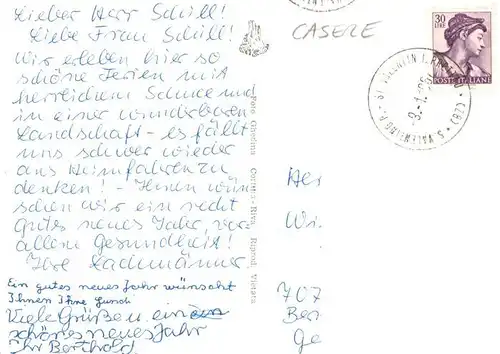 Lieber Herr Schill!
Liebe Frau Schill!
Wir erleben hier so
schöne Ferien mit
herrlichem Schnee und
in einer wunderbaren
Landschaft - es fällt
uns schwer wieder
ans Heimfahren zu
denken! - Ihnen wün-
schen wir ein recht
gutes neues Jahr, vor
allem Gesundheit!
Ihre Lachmänner.
Ein gutes neues Jahr wünscht
Ihnen Ihre
Viele Grüße u. ein
schönes neues Jahr
Ihr Berthold
CASERE
30
LIRE
POSTE ITALIANE
ST. VALENTIN
S. VALENTINO
(BZ)
Foto
Riva
Riprod. Vietata
Her
Wi
707
Ge